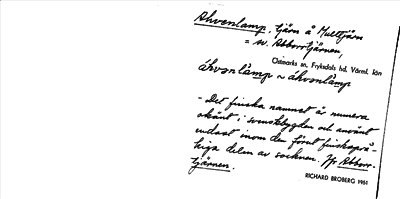 Ahvenlamp, tjärn å Multtjärn
= sv. Abborrtjärnen,
Östmarks sn, Fryksdals hd, Värml. län
áhvənlàmp ~ áhvənlàmp
- Det finska namnet är numera
okänt i svenskbygden och använt
endast inom den förut finskspra-
kiga delen av socknen. Jfr Abborr-
tjärnen.
RICHARD BROBERG 1951